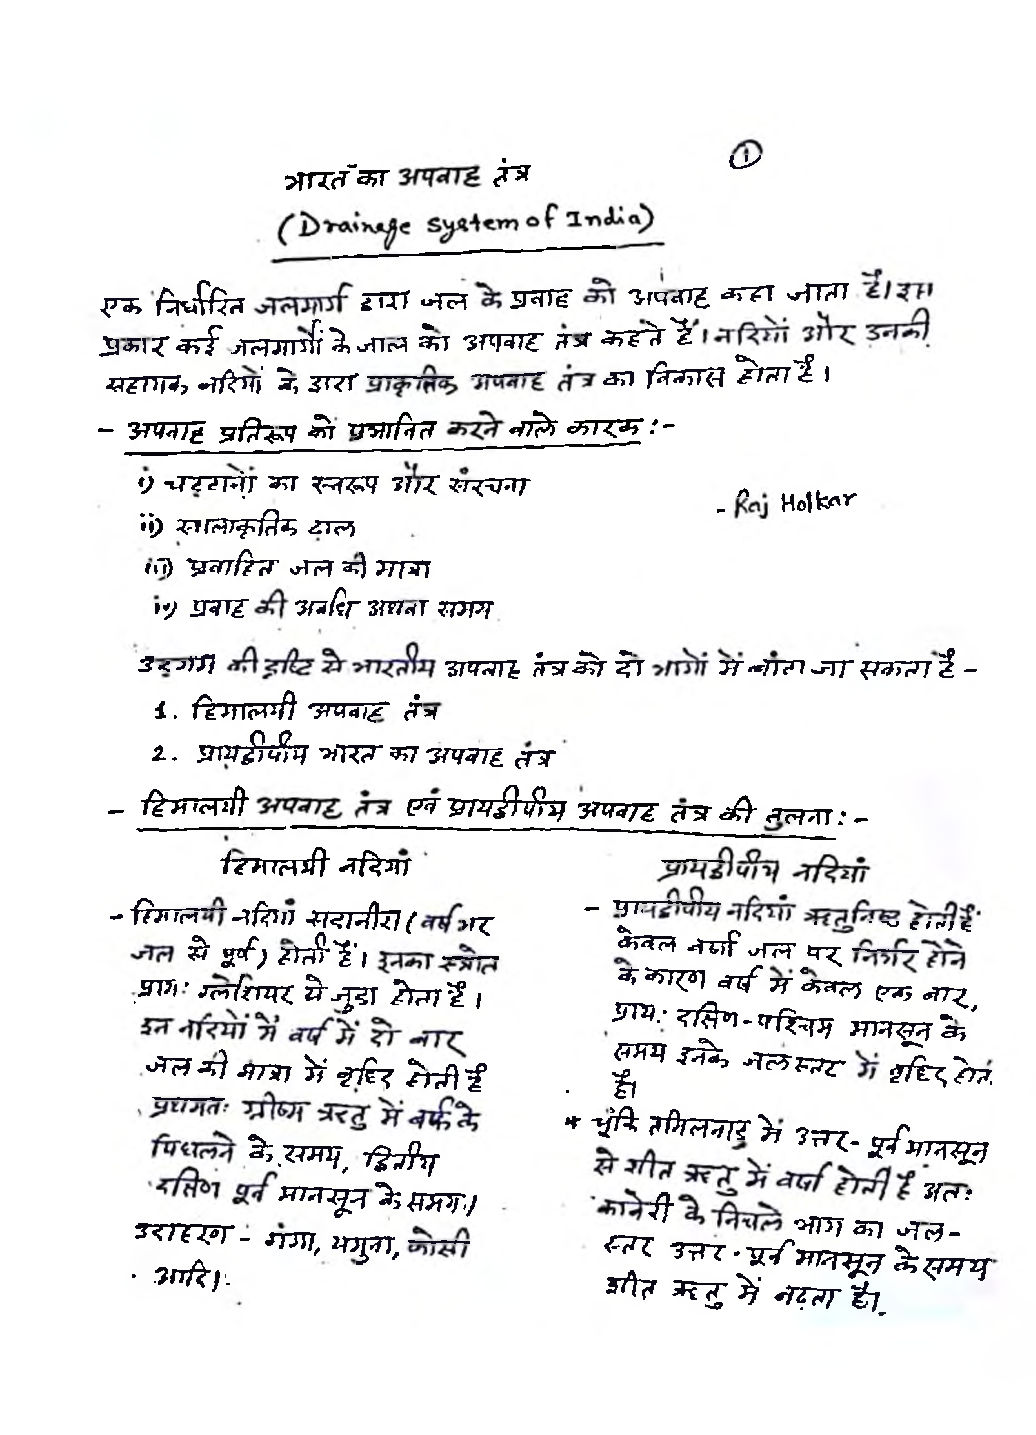 1
भारत का अपवाह तंत्र
(Drainage system of India)
एक निर्धारित जलमार्ग द्वारा जल के प्रवाह को अपवाह कहा जाता है। इस
प्रकार कई जलमार्गों के जाल को अपवाह तंत्र कहते हैं। नदियों और उनकी
सहायक नदियों के द्वारा प्राकृतिक अपवाह तंत्र का विकास होता है।
- अपवाह प्रतिरूप को प्रभावित करने वाले कारक :-
i) चट्टानों का स्वरूप और संरचना
- Raj Holkar
ii) स्थलाकृतिक ढाल
iii) प्रवाहित जल की मात्रा
iv) प्रवाह की अवधि अथवा समय
उद्गम की दृष्टि से भारतीय अपवाह तंत्र को दो भागों में बांटा जा सकता है -
1. हिमालयी अपवाह तंत्र
2. प्रायद्वीपीय भारत का अपवाह तंत्र
- हिमालयी अपवाह तंत्र एवं प्रायद्वीपीय अपवाह तंत्र की तुलना :-
हिमालयी नदियां
- हिमालयी नदियां सदानीरा (वर्ष भर
जल से पूर्ण) होती हैं। इनका स्त्रोत
प्रायः ग्लेशियर से जुड़ा होता है।
इन नदियों में वर्ष में दो बार
जल की मात्रा में वृद्धि होती है
प्रथमतः ग्रीष्म ऋतु में बर्फ के
पिघलने के समय, द्वितीय
दक्षिण पूर्व मानसून के समय।
उदाहरण - गंगा, यमुना, कोसी
आदि।
प्रायद्वीपीय नदियां
- प्रायद्वीपीय नदियां ऋतुनिष्ठ होती हैं
केवल वर्षा जल पर निर्भर होने
के कारण वर्ष में केवल एक बार,
प्रायः दक्षिण-पश्चिम मानसून के
समय इनके जल स्तर में वृद्धि होती
है।
* चूंकि तमिलनाडु में उत्तर-पूर्व मानसून
से शीत ऋतु में वर्षा होती है अतः
कावेरी के निचले भाग का जल-
स्तर उत्तर-पूर्व मानसून के समय
शीत ऋतु में बढ़ता है।